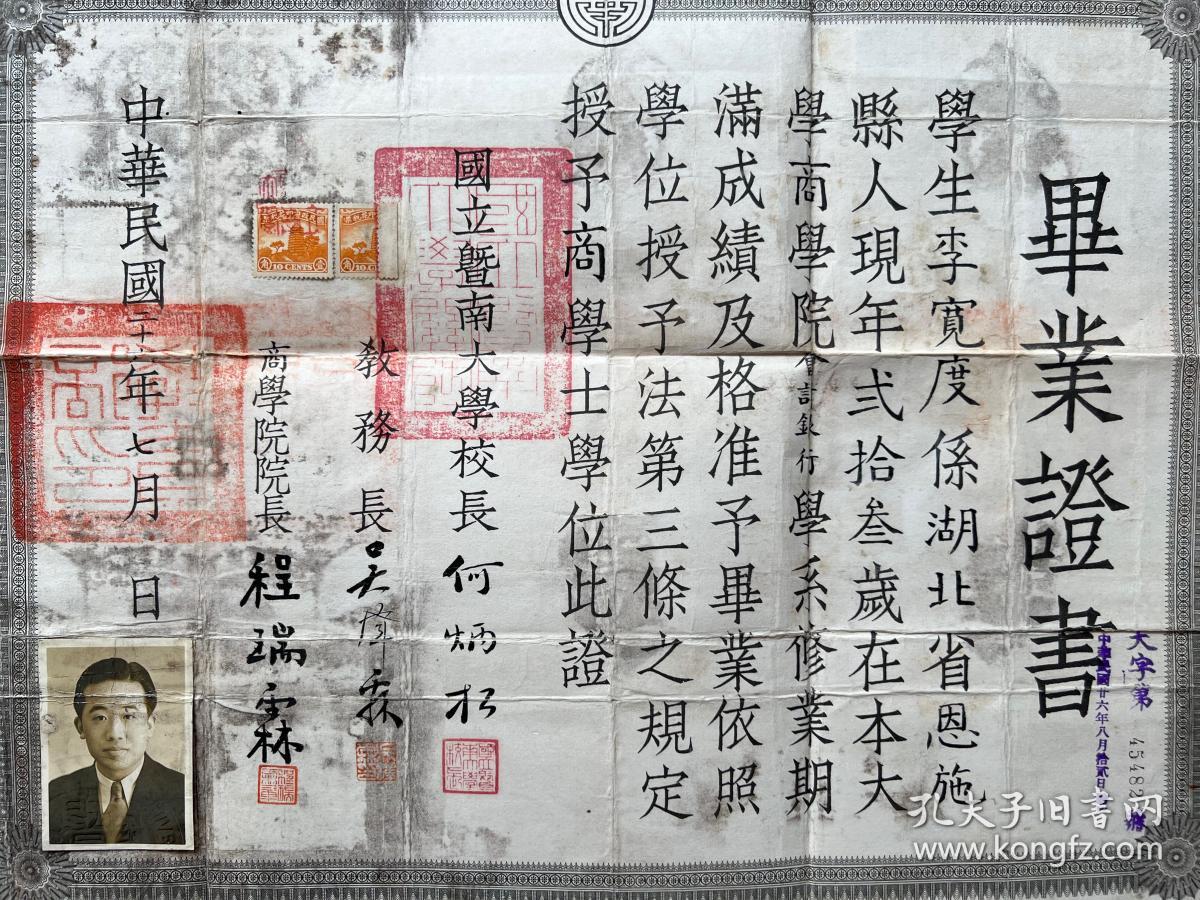 畢業證書
大字第 45482 號
中華民國廿六年八月拾貳日
學生李寬度係湖北省恩施
縣人現年弍拾叁歲在本大
學商學院會計銀行學系修業期
滿成績及格准予畢業依照
學位授予法第三條之規定
授予商學士學位此證
國立暨南大學校長 何炳松
教務長
商學院院長 程瑞霖
10 CENTS
中華民國二十六年七月 日
孔夫子旧书网
www.kongfz.com